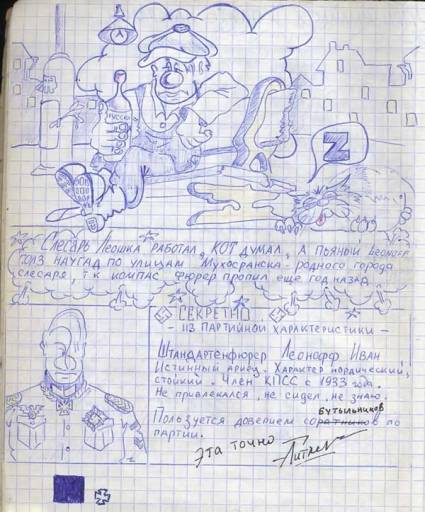 РУССК
Z
Слесарь Леошка работал, кот думал, а пьяный Леонорф
полз наугад по улицам Мухосранска - родного города
слесаря, т.к. компас фюрер пропил ещё год назад.
СЕКРЕТНО
- ИЗ ПАРТИЙНОЙ ХАРАКТЕРИСТИКИ -
Штандартенфюрер Леонорф Иван,
Истинный ариец. Характер нордический,
стойкий. Член КПСС с 1933 года.
Не привлекался, не сидел, не знаю.
бутыльников
Пользуется довением соратников по
партии.
Эта точно